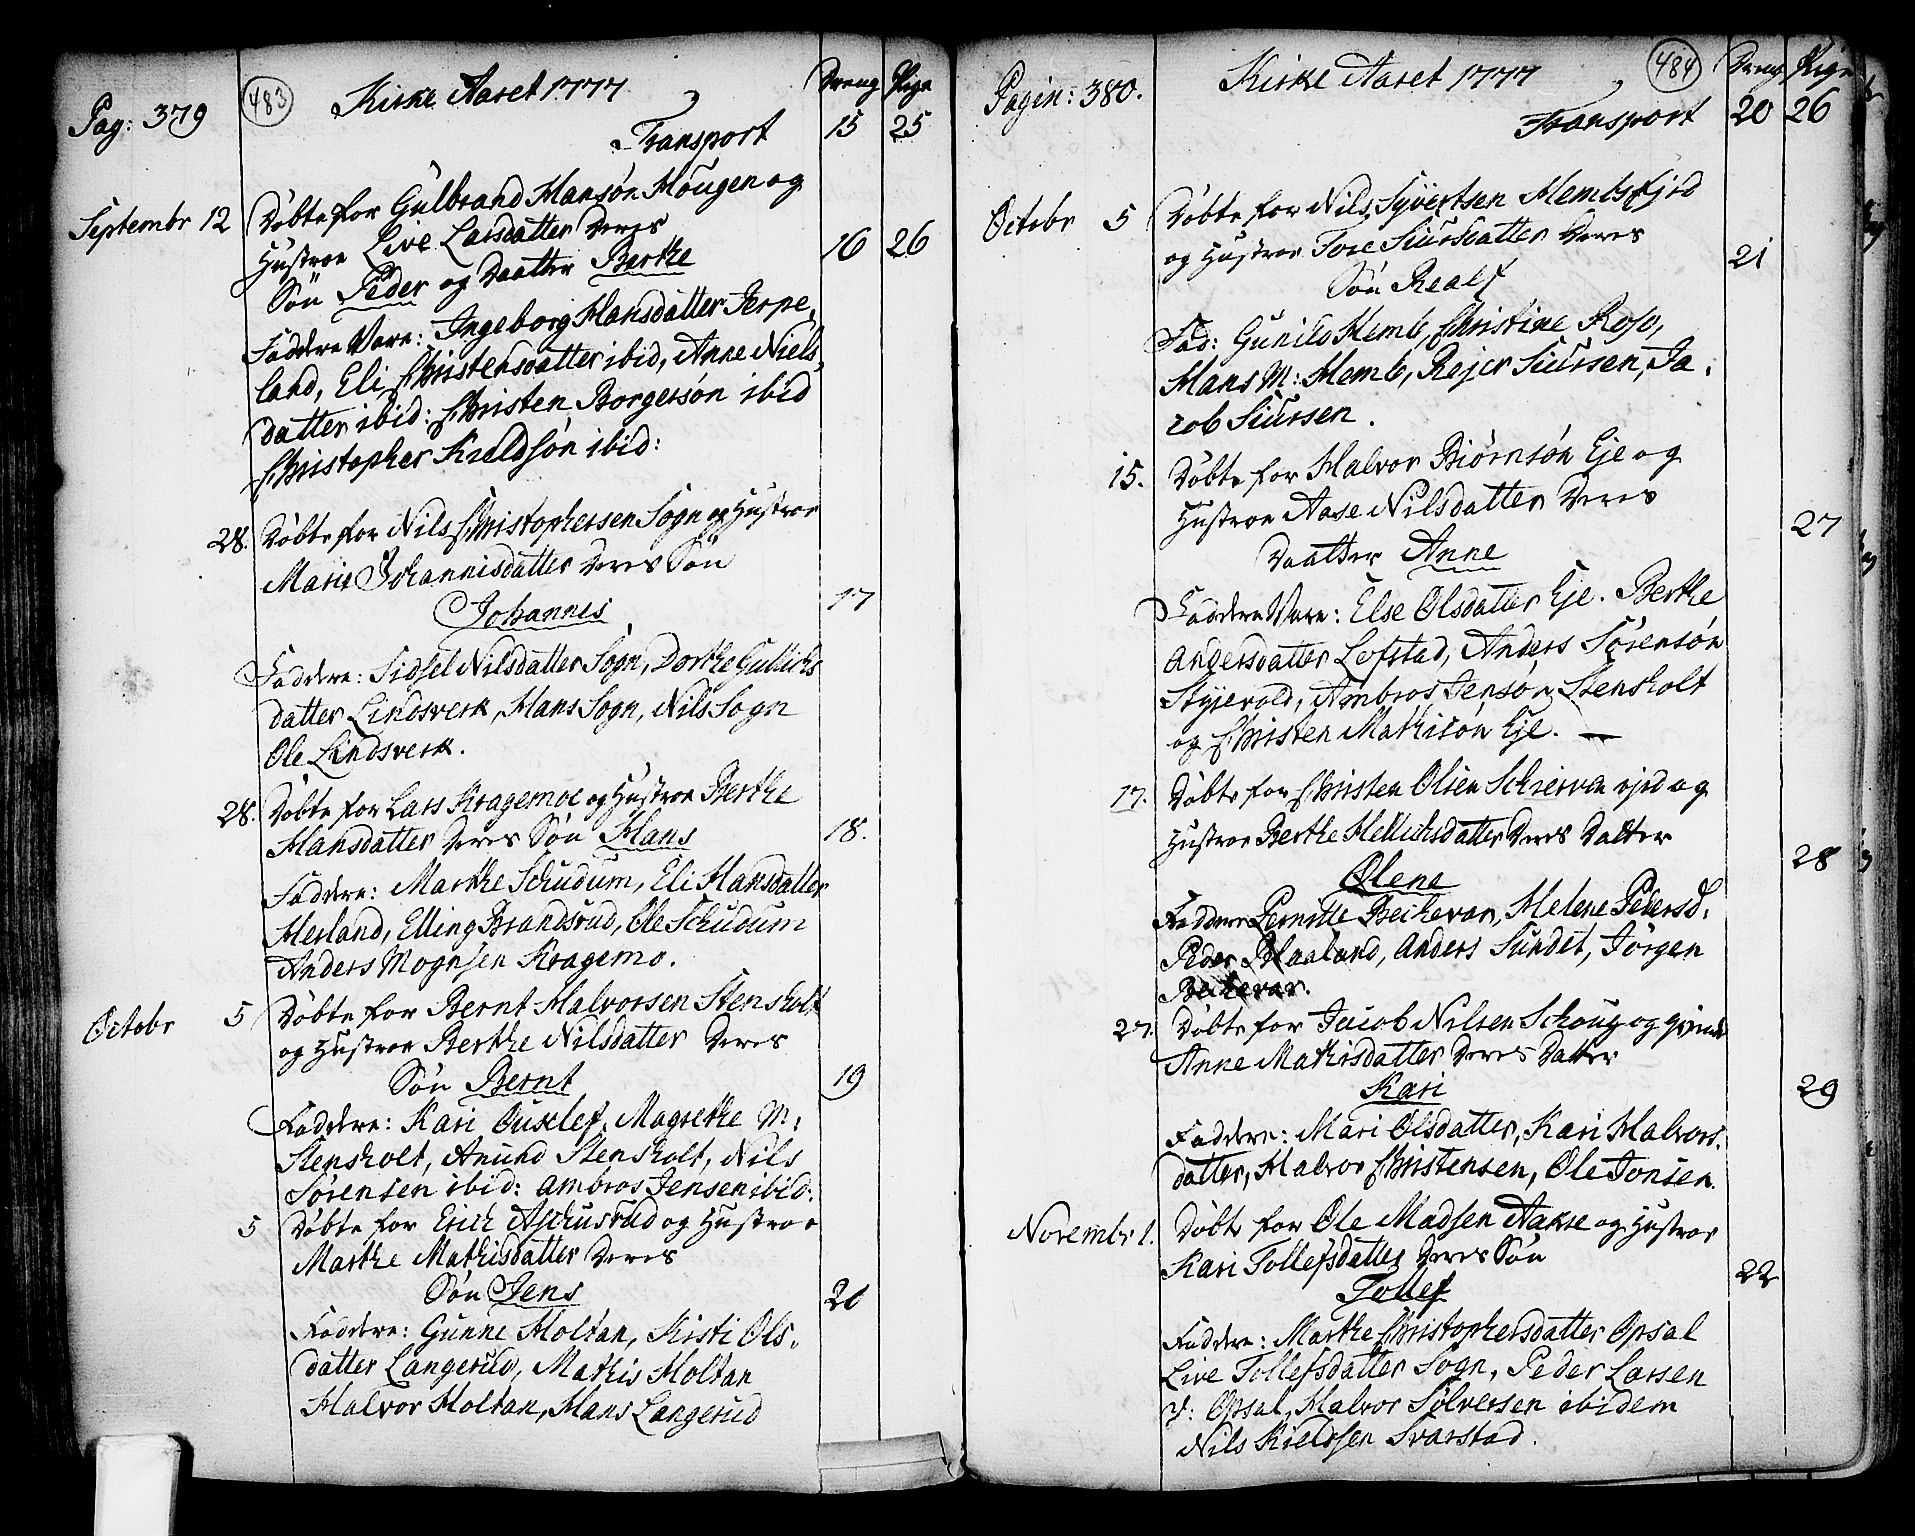 Pag: 379
483
Kirke Aaret 1777
Dreng Pige
Transport 15 25
Septembr 12 Döbte for Gulbrand Hansøn Hougen og
Hustroe Live Larsdatter Deres
Sön Peder og Daatter Berthe 16 26
Faddere Vare: Ingeborg Hansdatter Jerpe,
land, Eli Christensdatter ibid, Anne Niels,
datter ibid: Christen Borgersön ibid
Christopher Kieldsön ibid:
28. Döbte for Nils Christophersen Sogn og Hustroe
Marie Johannisdatter Deres Sön
Johannes 17
Faddere: Sidsel Nilsdatter Sogn, Dorthe Gullichs
datter Lindsverk, Hans Sogn, Nils Sogn
Ole Lindsverk.
28. Döbte for Lars Kragemoe og Hustroe Berthe
Hansdatter Deres Sön Hans 18.
Faddere: Marthe Schudum, Eli Hansdatter
Herland, Elling Brandsrud, Ole Schudum
Anders Mognsen Kragemo.
Octobr 5 Döbte for Bernt Halvorsen Stensholt
og Hustroe Berthe Nilsdatter Deres
Sön Bernt 19
Faddere: Kari Ouslef, Magrethe M:
Stensholt, Amund Stensholt, Nils
Sörensen ibid: Ambros Jensen ibid:
5 Döbte for Erich Aschusrud og Hustroe
Marthe Mathisdatter Deres
Sön Jens 20
Faddere: Gunne Holtan, Kisti Ols,
datter Langerud, Mathis Holtan
Halvor Holtan, Hans Langerud
Pagin: 380.
484
Kirke Aaret 1777
Dreng Pige
Transport 20 26
Octobr 5 Döbte for Nils Syvertsen Hembsejrd
og Hustroe Tore Siursdatter Deres
Sön Realf 21
Fad: Gunild Hemb, Christine Roso,
Hans M: Hemb, Rejer Siursen, Ja,
cob Siursen.
15. Döbte for Halvor Biörnsön Eje og
Hustroe Aase Nilsdatter Deres
Daatter Anne 27
Faddere Vare: Else Olsdatter Eje. Berthe
Andersdatter Lofstad, Anders Sörensön
Styjevold, Ambros Jensön Stensholt
og Christen Mathisön Eje.
17. Döbte for Christen Olsen Schiervan ejrd og
Hustroe Berthe Hellichsdatter Deres Datter
Olene 28
Faddere Pernille Beckevar, Helene Pedersd.
Peder Blaaland, Anders Sundet, Jörgen
Beckevar.
27. Döbte for Jacob Nilsen Schoug og qvinde
Anne Mathisdatter Deres Datter
Kari 29
Faddere: Mari Olsdatter, Kari Halvors,
datter, Halvor Christensen, Ole Jonsen.
Novembr 1. Döbte for Ole Madsen Aakse og Hustroe
Kari Tollefsdatter Deres Sön
Tollef 22
Faddere: Marthe Christophersdatter Opsal
Live Tollefsdatter Sogn, Peder Larsen
v: Opsal, Halvor Sölversen ibidem
Nils Kieldsen Svarstad.